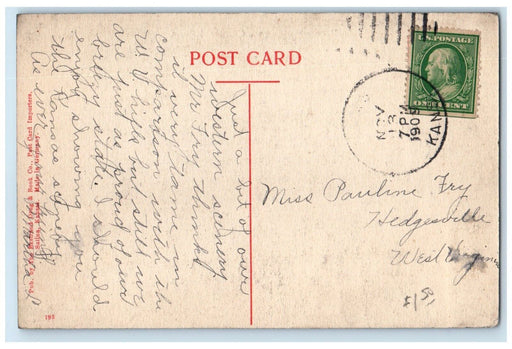 POST CARD
U.S. POSTAGE
ONE CENT
NOV
12
7 PM
1909
KAN
Just a bit of our
western scenery.
Mr. Fry thinks
it very tame in
comparison with the
W V hills but still we
are just as proud of our
state. I should
enjoy showing you
the Kansas scenery.
Miss Pauline Fry
Hedgesville
West Virginia
Book Co., Post Card Importers.
Made in Germany
193